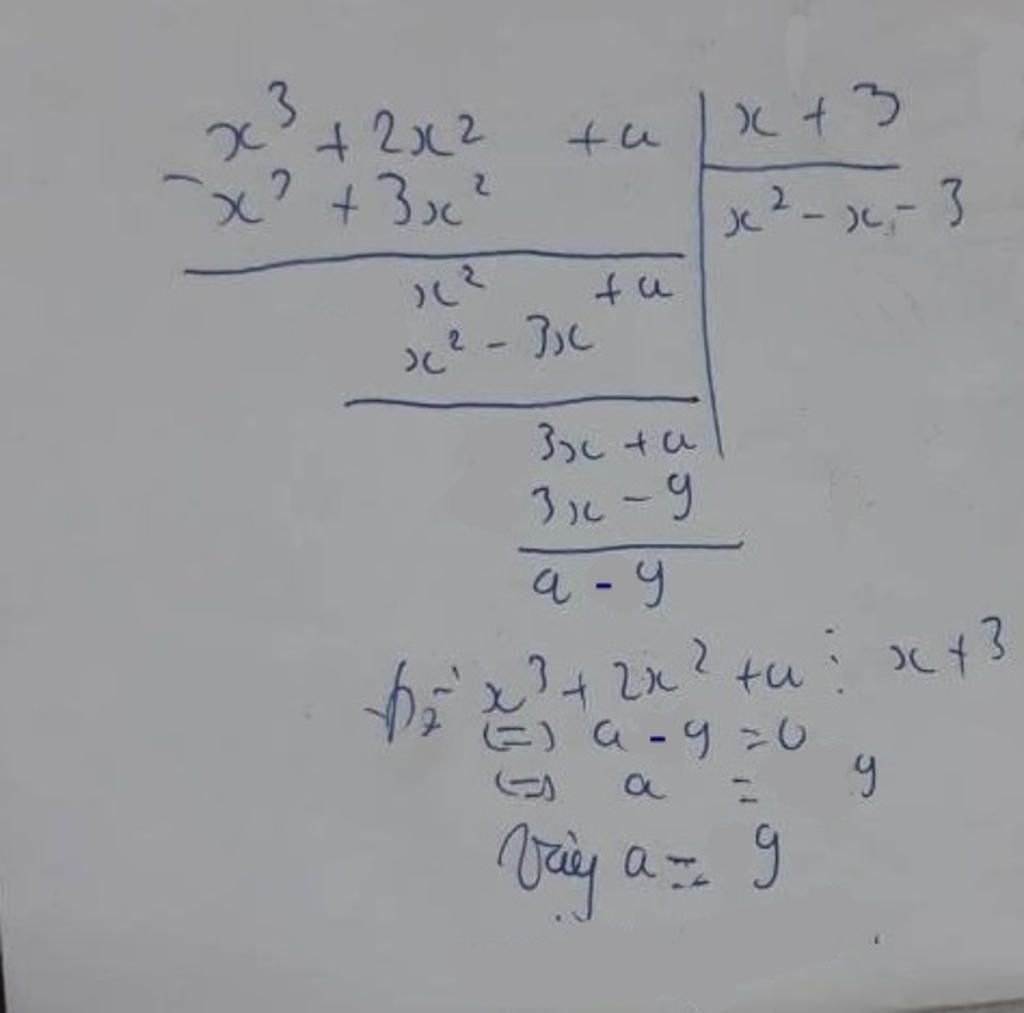 x³ + 2x² + a | x + 3
- x³ + 3x² | x² - x - 3
x² + a
x² - 3x
3x + a
3x - 9
a - 9
x³ + 2x² + a ⋮ x + 3
(=) a - 9 = 0
(=) a = 9
Vậy a = 9